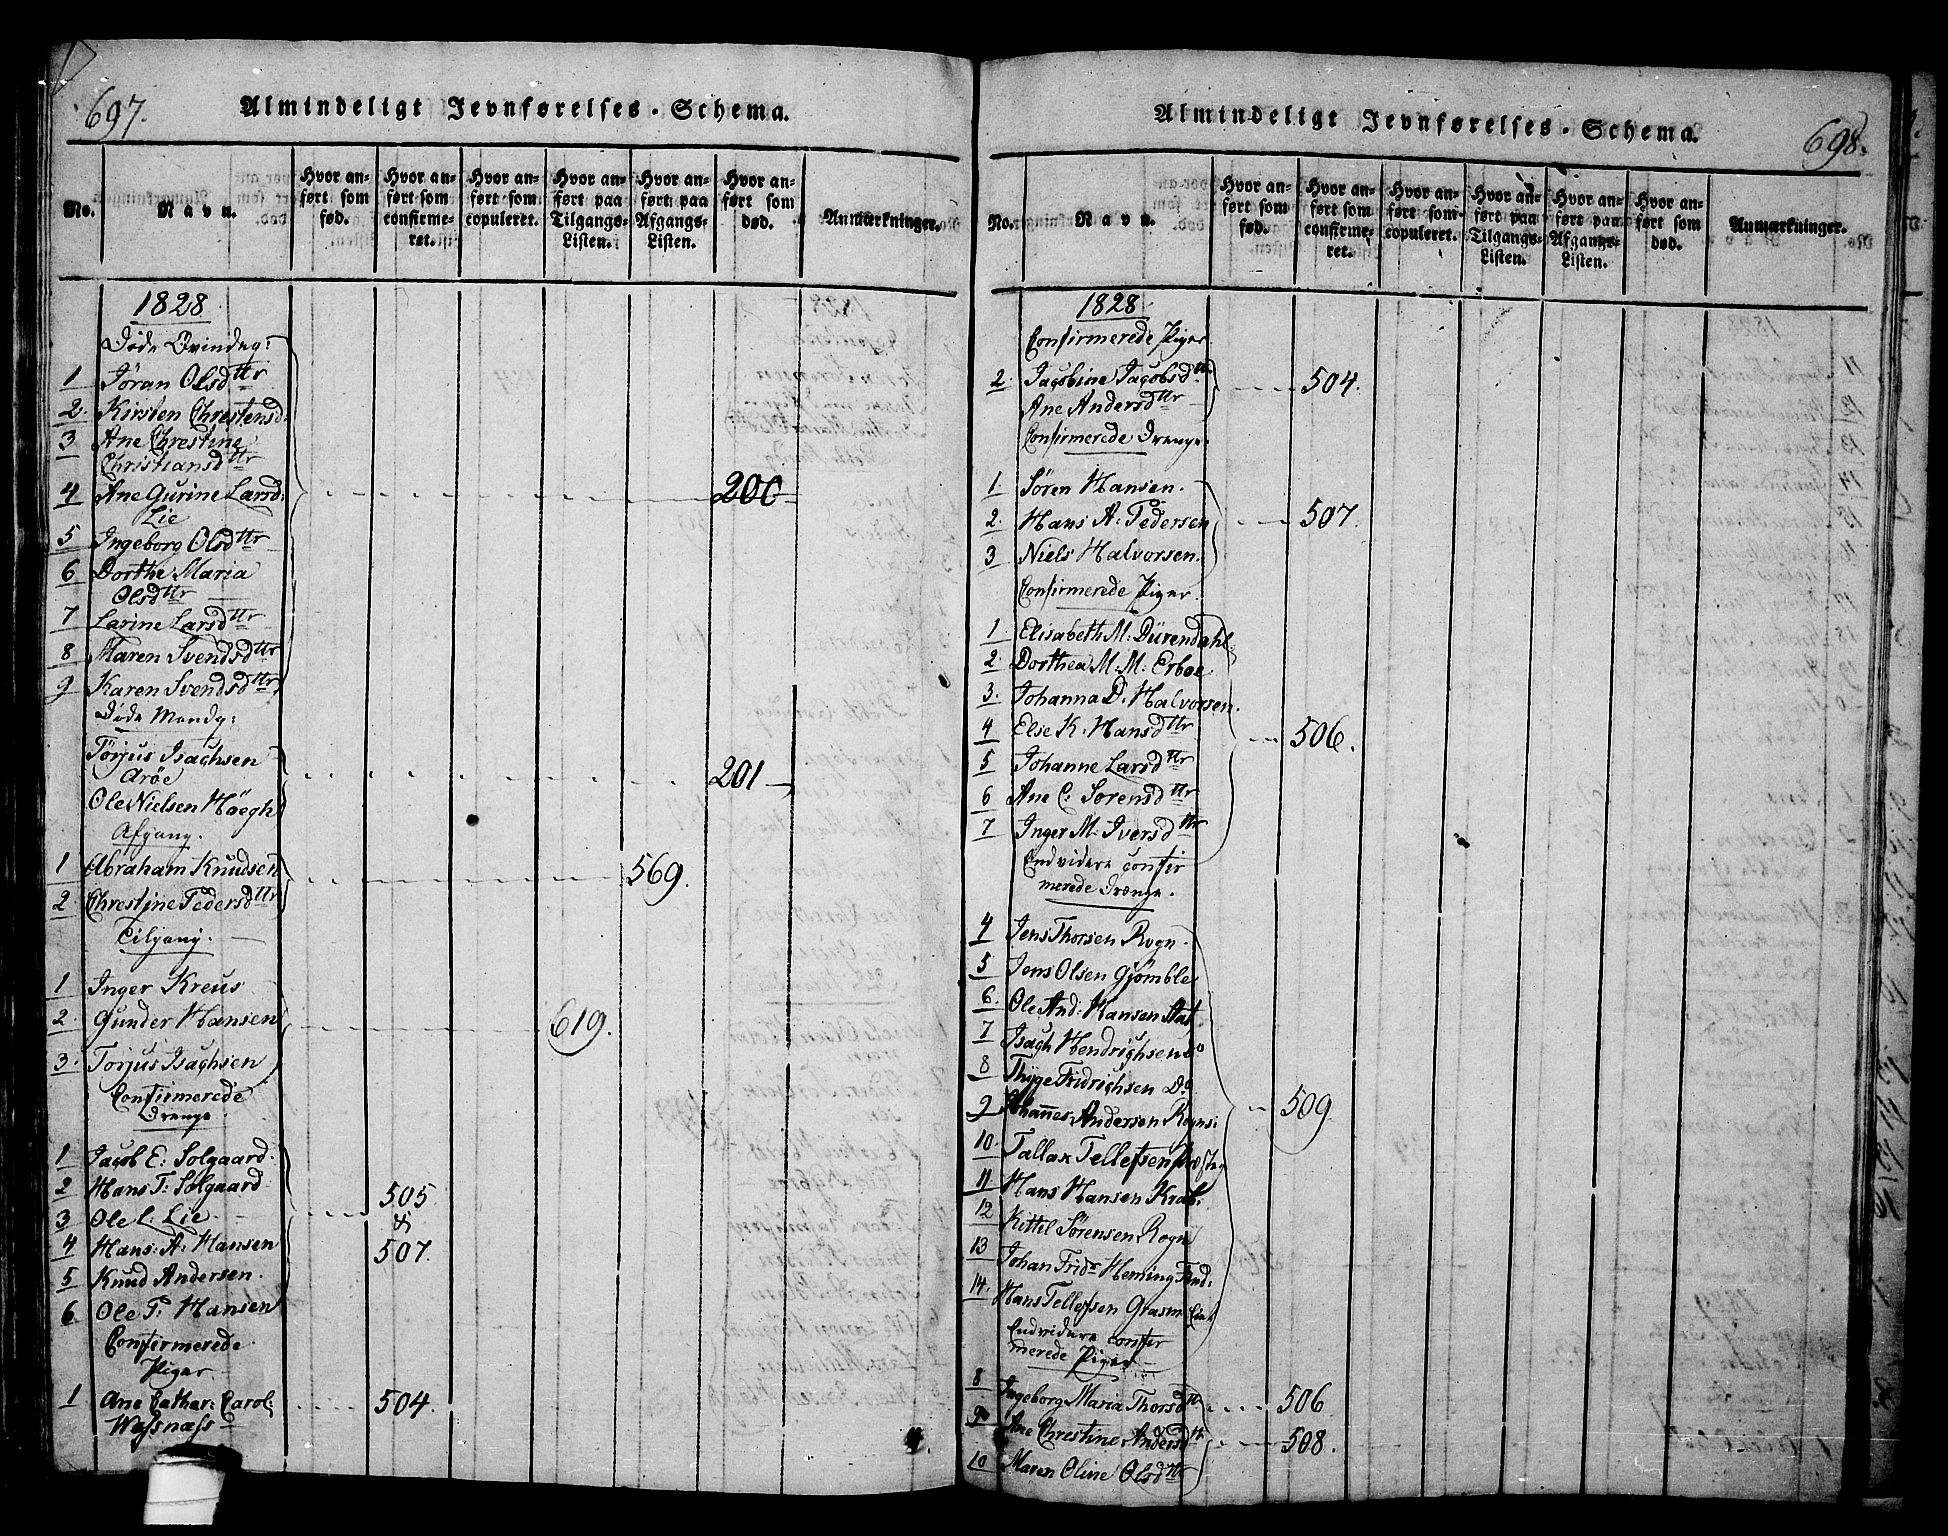 697.
Almindeligt Jevnførelses-Schema.
No.
Navn.
Hvor anført som fød.
Hvor anført som confirmeret.
Hvor anført som copuleret.
Hvor anført paa Tilgangs-Listen.
Hvor anført paa Afgangs-Listen.
Hvor anført som død.
Anmærkninger.
1828
Døde Qvindeg:
1 Jöran Olsdttr
2. Kirsten Chrestensd.
3 Ane Chrestine
Christiansdttr
4 Ane Gurine Larsd. 200
Lie
5 Ingeborg Olsdttr
6 Dorthe Maria
Olsdttr
7 Larine Larsdttr
8 Maren Svendsdttr
9 Karen Svendsdttr
Døde Mandg:
Törjus Isachsen
Aröe 201
Ole Nielsen Höegh
Afgang.
1 Abraham Knudsen 569.
2 Chrestine Pedersdttr
Tilgang.
1 Inger Kreus
2. Gunder Hansen 619.
3. Torjus Isachsen
Confirmerede
Drenge.
1 Jacob E: Solgaard.
2 Hans T: Solgaard 505
3 Ole L. Lie. &
4 Hans: A: Hansen 507.
5 Knud Andersen.
6 Ole T: Hansen
Confirmerede
Piger
1 Ane Cathar: Carol: 504.
Wessness
698.
Almindeligt Jevnførelses-Schema.
No.
Navn.
Hvor anført som fød.
Hvor anført som confirmeret.
Hvor anført som copuleret.
Hvor anført paa Tilgangs-Listen.
Hvor anført paa Afgangs-Listen.
Hvor anført som død.
Anmærkninger.
1828
Confirmerede Piger
2. Jacobine Jacobsdttr 504.
Ane Andersdttr
Confirmerede Drenge.
1 Sören Hansen.
2. Hans A: Pedersen 507.
3 Niels Halvorsen.
Confirmerede Piger.
1. Elisabeth M: Dürendahl
2. Dorthea M: M: Erboe
3. Johanna D. Halvorsen.
4 Else K. Hansdttr 506.
5 Johanne Larsdttr
6 Ane C: Sorensdttr
7 Inger M. Iversdttr
Endvidere confir
merede Drenge.
4 Jens Thorsen Rogn.
5 Jens Olsen Gjömble
6. Ole And: Hansen Stat.
7 Isach Hendrichsen Do
8 Thyge Fridrichsen Do
9 Johannes Andersen Rogns: 509.
10. Tallak Tellefsen
11 Hans Hansen Krab.
12 Kittil Sörensen Rogn
13 Johan Fridr Heming
14. Hans Tellefsen
Endvidere confir
merede Piger
8 Ingeborg Maria Thorsdttr 506
9 Ane Chrestine Andersdttr 508.
10 Maren Oline Olsdttr